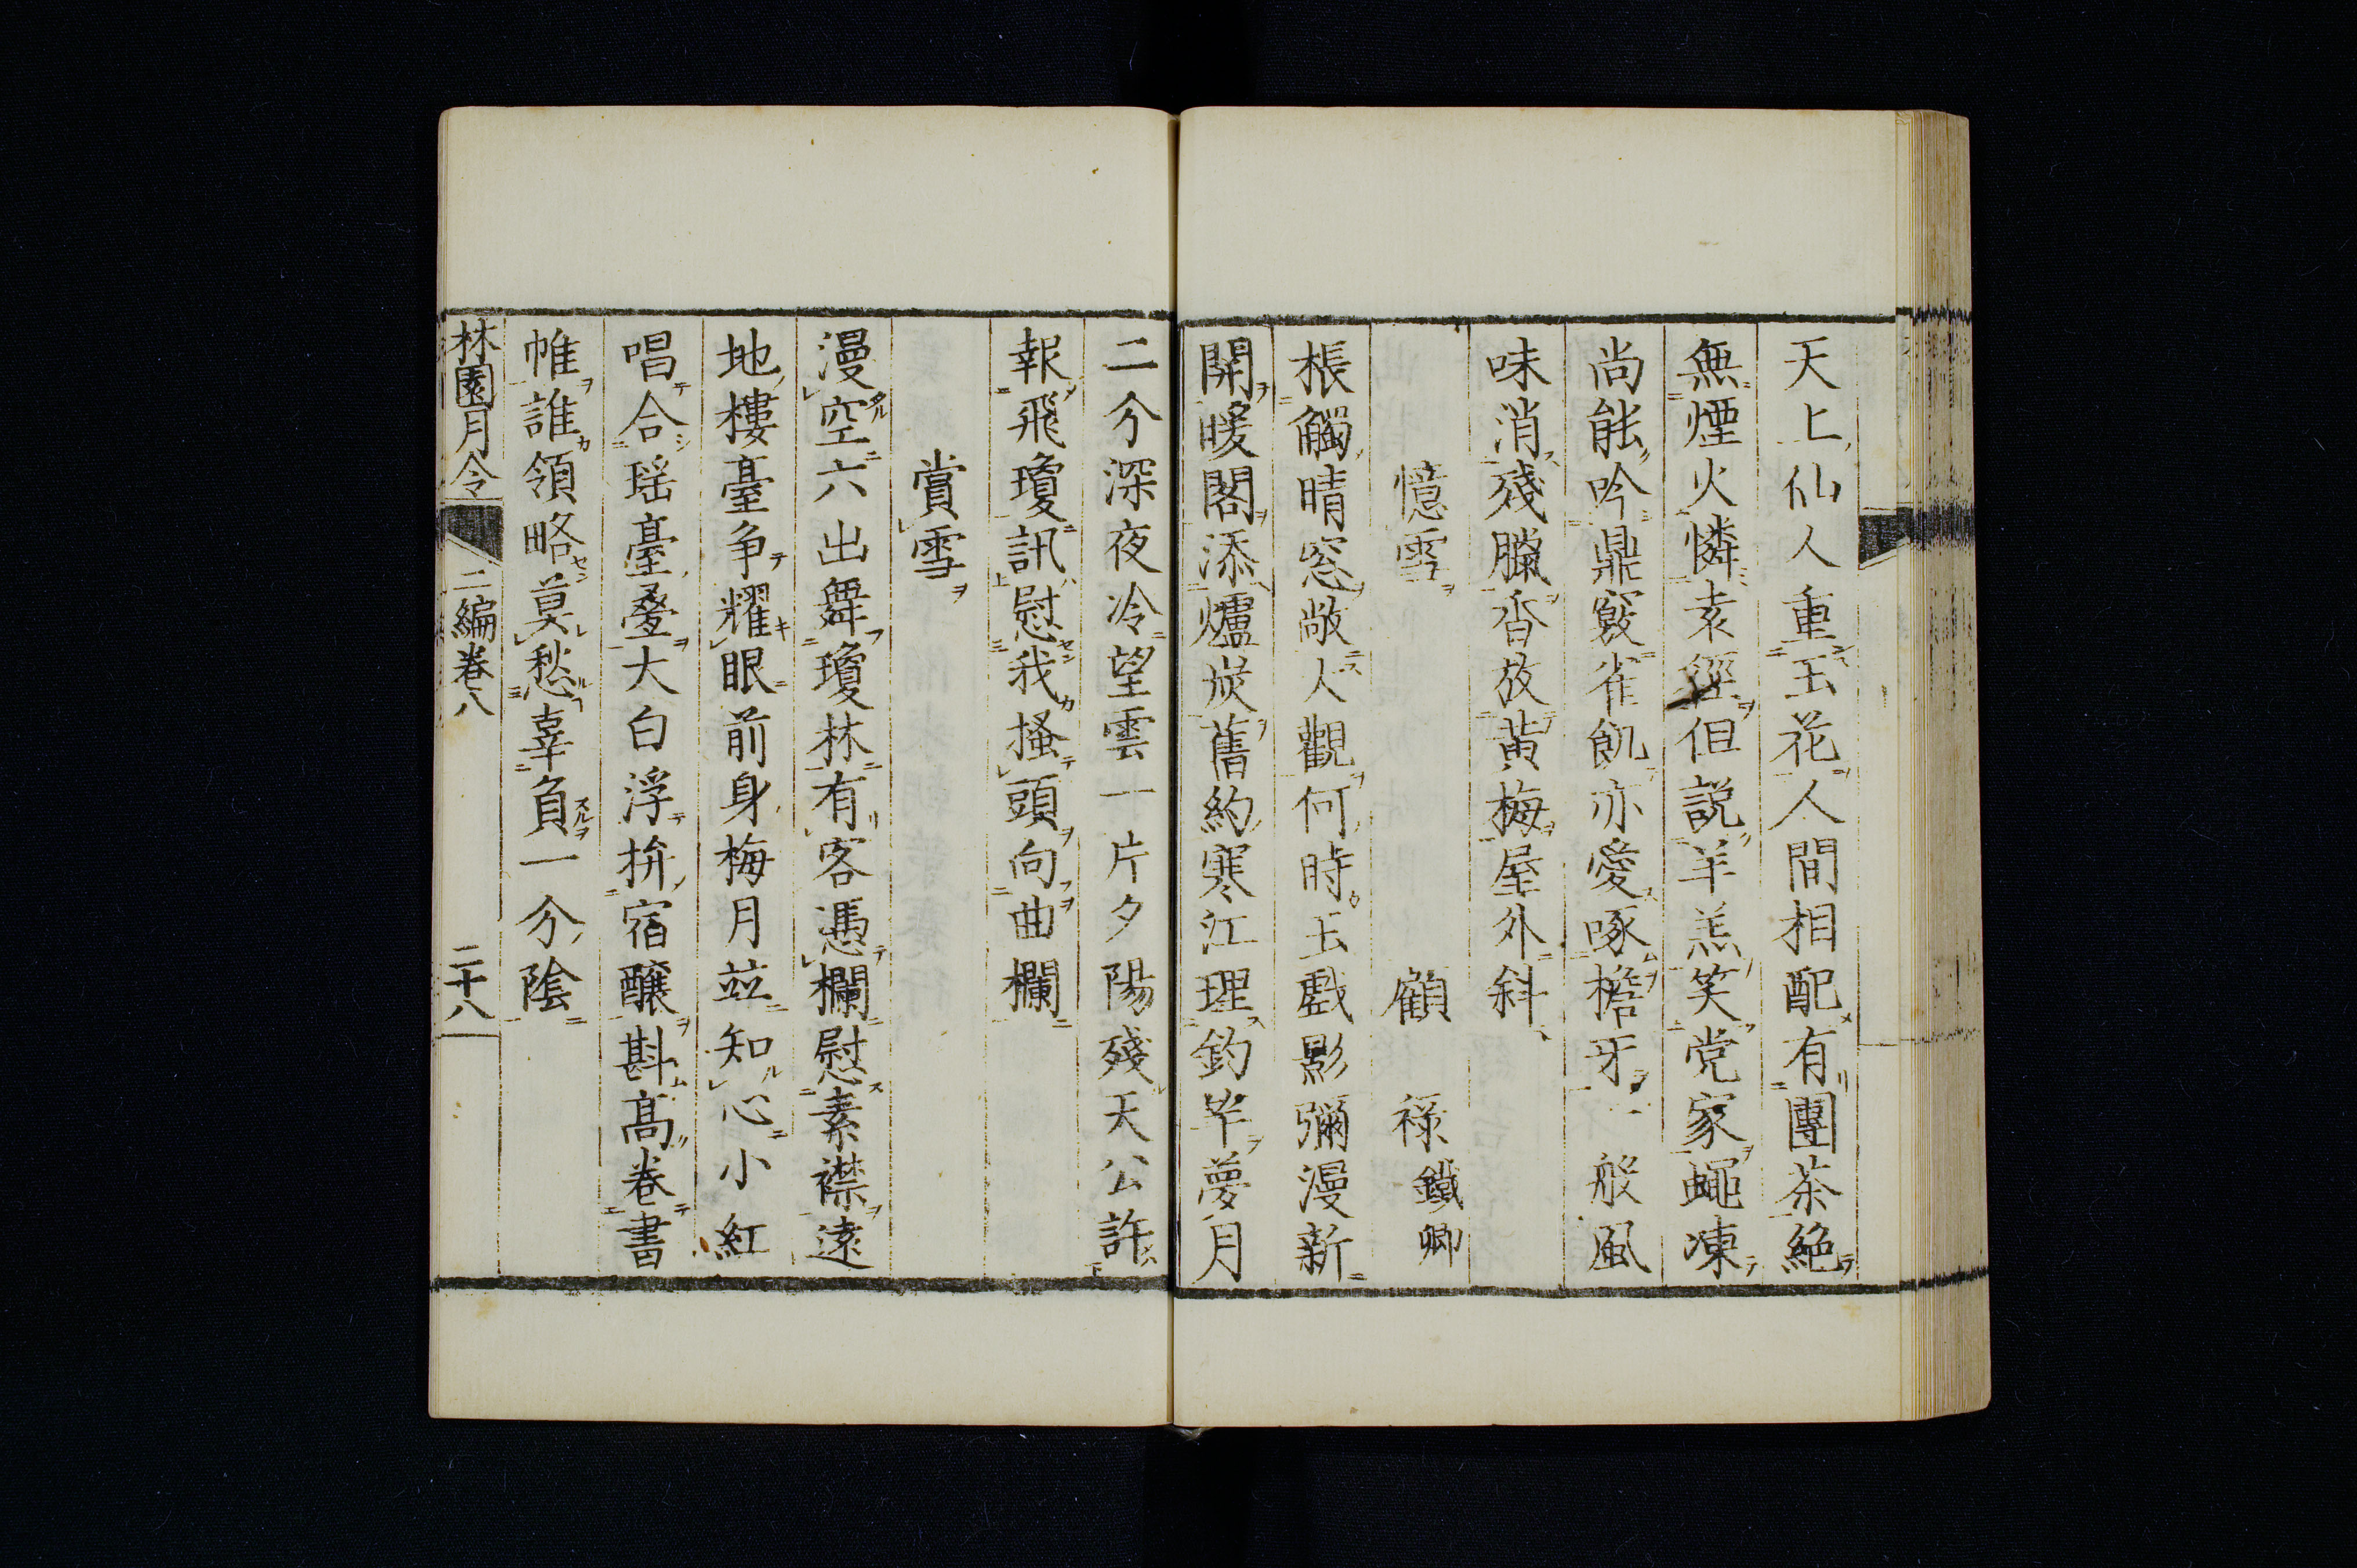 天上仙人重玉花人間相配有團茶絶
無煙火憐袁徑但説羊羔笑党家蠅凍
尚能吟鼎竅雀飢亦愛啄檐牙一般風
味消殘臘香放黄梅屋外斜
憶雪　顧禄鐵卿
棖觸晴窓敞人觀何時玉戲影彌漫新
開暖閣添爐炭舊約寒江理釣竿夢月
二分深夜冷望雲一片夕陽殘天公許
報飛瓊訊慰我搔頭向曲欄
賞雪
漫空六出舞瓊林有客憑欄慰素襟遠
地樓臺争耀眼前身梅月竝知心小紅
唱合瑶臺疊大白浮拚宿釀斟高卷書
帷誰領略莫愁辜負一分陰
林園月令　二編卷八　二十八